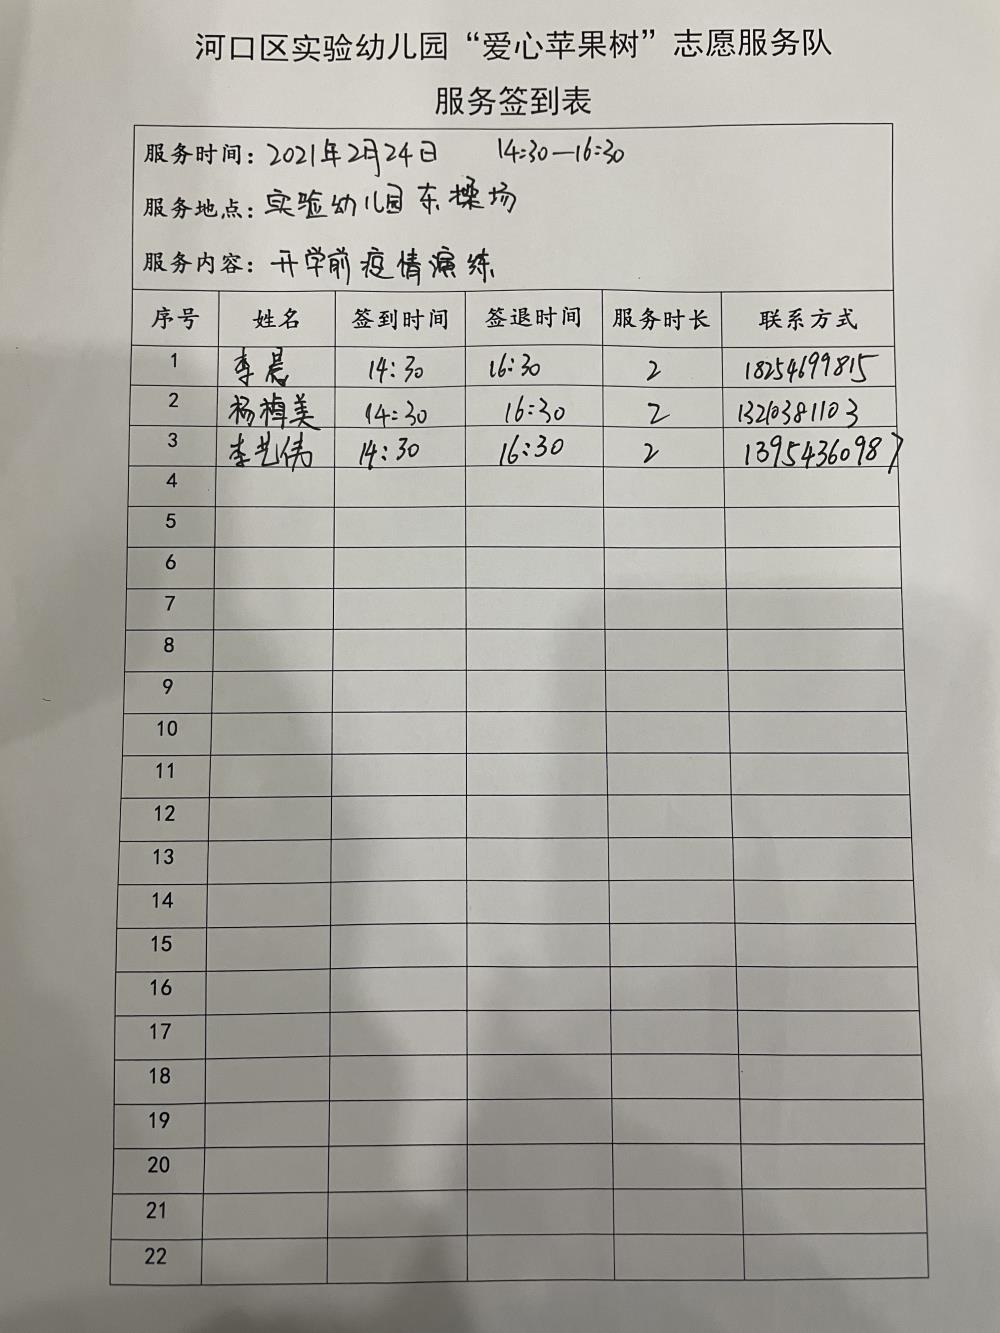 河口区实验幼儿园“爱心苹果树”志愿服务队
服务签到表
服务时间：2021年2月24日 14:30—16:30
服务地点：实验幼儿园东操场
服务内容：开学前疫情演练
序号 姓名 签到时间 签退时间 服务时长 联系方式
1 李晨 14:30 16:30 2 18254699815
2 杨梅美 14:30 16:30 2 13210381103
3 李艺伟 14:30 16:30 2 13954360987
4
5
6
7
8
9
10
11
12
13
14
15
16
17
18
19
20
21
22